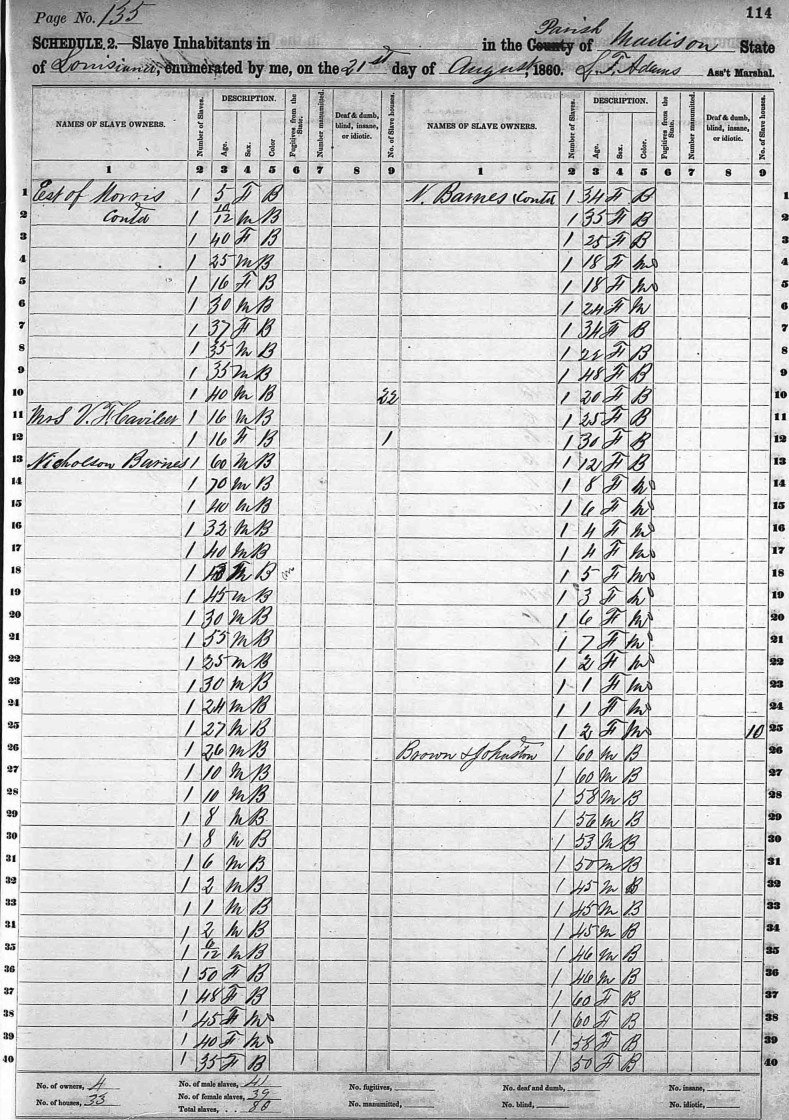 Page No. 135
114
SCHEDULE 2.—Slave Inhabitants in in the County Parish of Madison State
of Louisiana, enumerated by me, on the 21st day of August, 1860. L. F. Adams Ass't Marshal.
NAMES OF SLAVE OWNERS. Number of Slaves. DESCRIPTION. Age. Sex. Color Fugitives from the State. Number manumitted. Deaf & dumb, blind, insane, or idiotic. No. of Slave houses. NAMES OF SLAVE OWNERS. Number of Slaves. DESCRIPTION. Age. Sex. Color. Fugitives from the State. Number manumitted. Deaf & dumb, blind, insane, or idiotic. No. of Slave houses.
1 2 3 4 5 6 7 8 9 1 2 3 4 5 6 7 8 9
1 Est of Morris 1 5 F B N. Barnes (Contd 1 34 F B 1
2 Contd 1 10/12 M B 1 35 F B 2
3 1 40 F B 1 25 F B 3
4 1 25 M B 1 18 F Mo 4
5 1 16 F B 1 18 F Mo 5
6 1 30 M B 1 24 F M 6
7 1 37 F B 1 34 F B 7
8 1 35 M B 1 22 F B 8
9 1 35 M B 1 48 F B 9
10 1 40 M B 22 1 20 F B 10
11 Mrs V. F. 1 16 M B 1 25 F B 11
12 1 16 F B 1 1 30 F B 12
13 Nicholson Barnes 1 60 M B 1 12 F B 13
14 1 70 M B 1 8 F Mo 14
15 1 40 M B 1 6 F Mo 15
16 1 32 M B 1 4 F Mo 16
17 1 40 M B 1 4 F Mo 17
18 1 B 1 5 F Mo 18
19 1 45 M B 1 3 F Mo 19
20 1 30 M B 1 6 F Mo 20
21 1 55 M B 1 7 F Mo 21
22 1 25 M B 1 2 F Mo 22
23 1 30 M B 1 1 F Mo 23
24 1 24 M B 1 1 F Mo 24
25 1 27 M B 1 2 F Mo 10 25
26 1 26 M B Brown & Johnston 1 60 M B 26
27 1 10 M B 1 60 M B 27
28 1 10 M B 1 58 M B 28
29 1 8 M B 1 56 M B 29
30 1 8 M B 1 53 M B 30
31 1 6 M B 1 50 M B 31
32 1 2 M B 1 45 M B 32
33 1 1 M B 1 45 M B 33
31 1 2 M B 1 45 M B 34
35 1 6/12 M B 1 46 M B 35
36 1 50 F B 1 46 M B 36
37 1 48 F B 1 60 F B 37
38 1 45 F Mo 1 60 F B 38
39 1 40 F Mo 1 58 F B 39
40 1 35 F B 1 50 F B 40
No. of owners, 4 No. of male slaves, 41 No. fugitives, No. of deaf and dumb, No. of insane,
No. of houses, 33 No. of female slaves, 39 No. manumitted, No. of blind, No. of idiotic,
Total slaves, . . 80